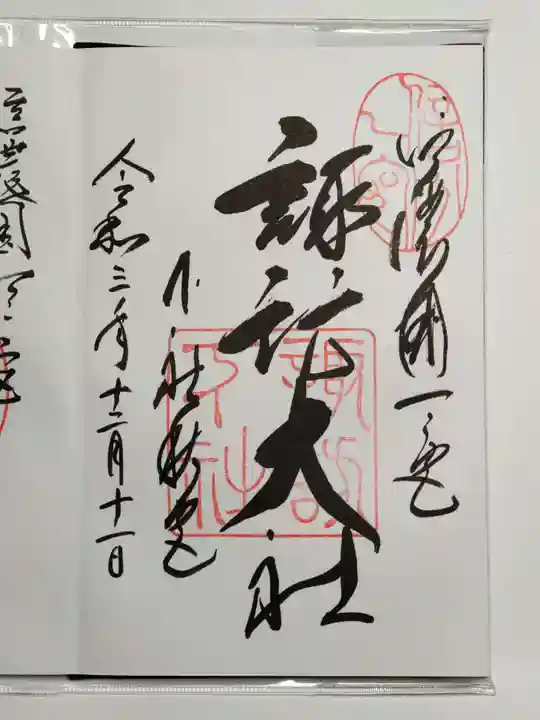 信濃國一之宮
諏訪大社
下社秋宮
令和三年十二月十一日
諏訪
下社